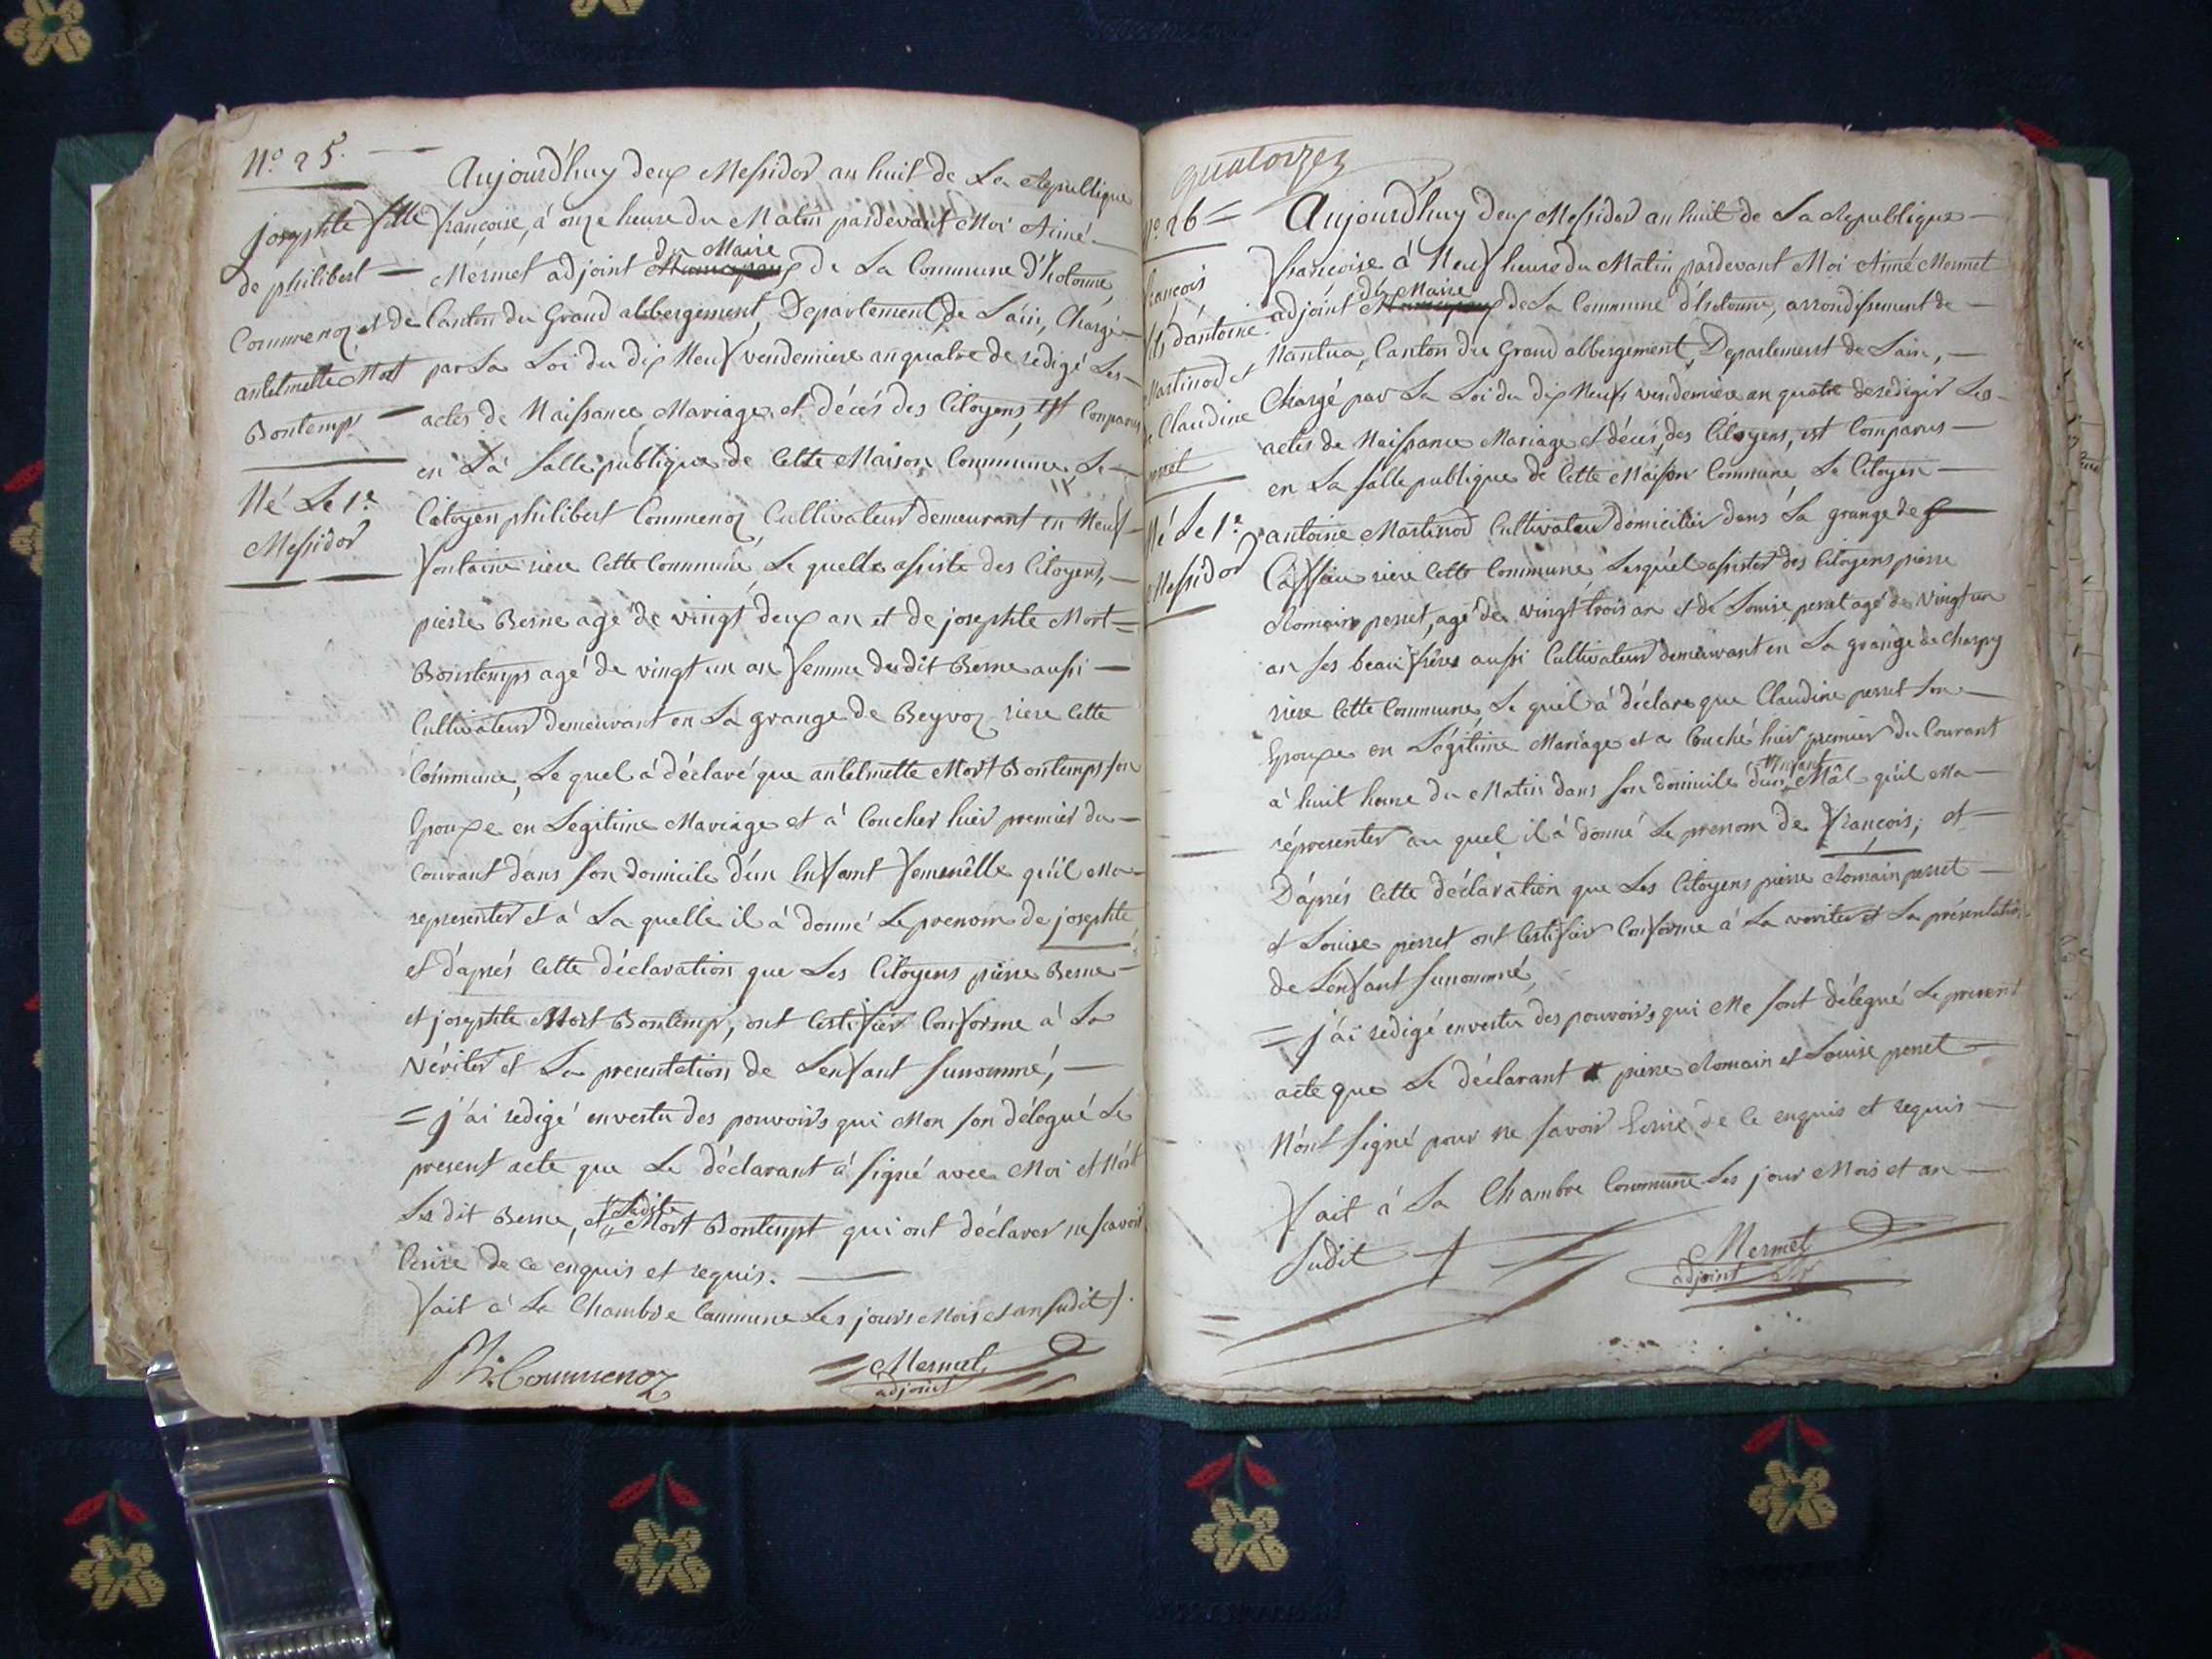 N.º 25.
josephte fille
de philibert
Commenoz et de
antelmette Mort
Bontemps
Né Le 1.er
Messidor
Aujourd'huy deux Messidor an huit de La Republique
françoise, à onze heure du Matin pardevant Moi Aimé
Mermet adjoint du Maire de La Commune d'hotonne,
Canton du Grand abbergement, Departement de L'ain, Chargé
par La Loi du dix Neuf vendemiere an quatre de redigé Les
actes de Naissance Mariage et décés des Citoyens, est Comparus
en La salle publique de Cette Maison Commune Le
Citoyen philibert Commenoz Cultivateur demeurant en Neuf
fontaine riere Cette Commune, Le quelle assiste des Citoyens,
pierre Berne agé de vingt deux an et de josephte Mort=
Bontemps agé de vingt un an femme dudit Berne aussi
Cultivateur demeurant en La grange de Beyvoz riere Cette
Commune, Le quel à déclaré que antelmette Mort Bontemps son
Epouxe en Legitime Mariage et à Coucher hier premier du
Courant dans son domicile d'un Enfant femenêlle qu'il Ma
representer et à La quelle il à donné Le prenom de josephte
et d'aprés Cette déclaration que Les Citoyens pierre Berne
et josephte Mort Bontemps, ont Certifier Conforme à La
Vériter et La presentation de L'enfant surnommé,
= j'ai redigé en vertu des pouvoirs qui Mon son délegué Le
present acte que Le déclarant à signé avec Moi et N'ont
Le dit Berne, et Ladite Mort Bontempt qui ont déclarer ne scavoir
Ecrire de ce enquis et requis.
fait à La Chambre Commune Les jours Mois et an sudit
Ph: Commenoz
Mermet
adjoint
quatorze
N.º 26
françois
fils d'antoine
Martinod et
de Claudine
perret
Né Le 1.er
Messidor
Aujourd'huy deux Messidor an huit de La Republique
françoise à Neuf heure du Matin pardevant Moi Aimé Mermet
adjoint du Maire de La Commune d'hotonne, arrondissement de
Nantua, Canton du Grand abbergement, Departement de Lain,
Chargé par La Loi du dix Neuf vendemiere an quatre de rédiger Les
actes de Naissance Mariage et décés, des Citoyens, est Comparus
en La salle publique de Cette Maison Commune Le Citoyen
antoine Martinod Cultivateur domicilier dans La grange de
riere Cette Commune, Lesquel assister des Citoyens pierre
Romain perret, agé de vingt trois an et de Louise perret agé de Vingt un
an ses beau frères aussi Cultivateur demeurant en La grange de Charpy
riere Cette Commune, Le quel à déclare que Claudine perret son
Epouxe en Légitime Mariage et a Couché hier premier du Courant
à huit heure du Matin dans son domicile d'un Enfant Mâl qu'il Ma
répresenter au quel il à donné Le prenom de françois, et
D'aprés Cette déclaration que Les Citoyens pierre Romain perret
et Louise perret ont Certifier Conforme à La veriter et La présentation
de L'enfant surnommé,
= j'ai redigé en vertu des pouvoirs qui Me sont délegué Le present
acte que Le déclarant pierre Romain et Louise perret
N'ont signé pour ne savoir Ecrire de ce enquis et requis
fait à La Chambre Commune Les jour Mois et an
Sudit
Mermet
adjoint